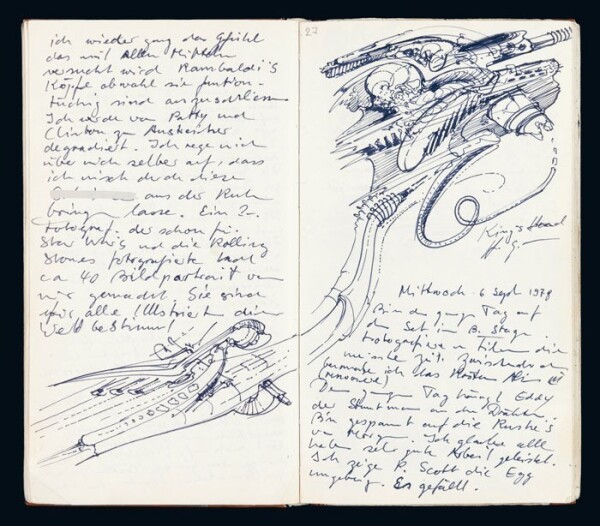 ich wieder ganz das Gefühl
das mit Allen Mitteln
versucht wird Rambaldi's
Köpfe obwohl sie funktion-
tüchig sind
Ich werde von Patty und
Clinton zu Anstreicher
degradiert. Ich rege mich
über mich selber auf, dass
ich mich durch diese
aus der Ruh
bringen lasse. Ein 2.
Fotograf. der schon für
Star Wars und die Rolling
Stones fotografierte hat
ca 40 Bildportrait von
mir gemacht. Sie sind
mir alle
27
King's Head
Mittwoch 6 Sept 1978
Bin den ganze Tag auf
dem Set im B. Stage
Fotografieren filmen die
meiste Zeit. zwischendurch
ich das Kosten Alien
(removed)
Den ganzen Tag hängt Eddy
der Stuntman an den Drähten.
Bin gespannt auf die Rushe's
von Morgen. Ich glaube alle
haben sehr gute Arbeit geleistet.
Ich zeige R. Scott die Egg
umgebung. Es gefällt.